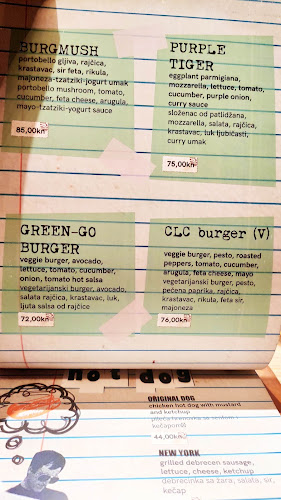 BURGMUSH
portobello gljiva, rajčica,
krastavac, sir feta, rikula,
majoneza-tzatziki-jogurt umak
portobello mushroom, tomato,
cucumber, feta cheese, arugula,
mayo-tzatziki-yogurt sauce
85,00kn
PURPLE
TIGER
eggplant parmigiana,
mozzarella, lettuce, tomato,
cucumber, purple onion,
curry sauce
složenac od patlidžana,
mozzarella, salata, rajčica,
krastavac, luk ljubičasti,
curry umak
75,00kn
GREEN-GO
BURGER
veggie burger, avocado,
lettuce, tomato, cucumber,
onion, tomato hot salsa
vegetarijanski burger, avocado,
salata rajčica, krastavac, luk,
ljuta salsa od rajčice
72,00kn
CLC burger (V)
veggie burger, pesto, roasted
peppers, tomato, cucumber,
arugula, feta cheese, mayo
vegetarijanski burger, pesto,
pečena paprika, rajčica,
krastavac, rikula, feta sir,
majoneza
76,00kn
hot dog
ORIGINAL DOG
chicken hot dog with mustard
and ketchup
44,00kn
NEW YORK
grilled debrecen sausage,
lettuce, cheese, ketchup
debrecinka sa žara, salata, sir,
kečap